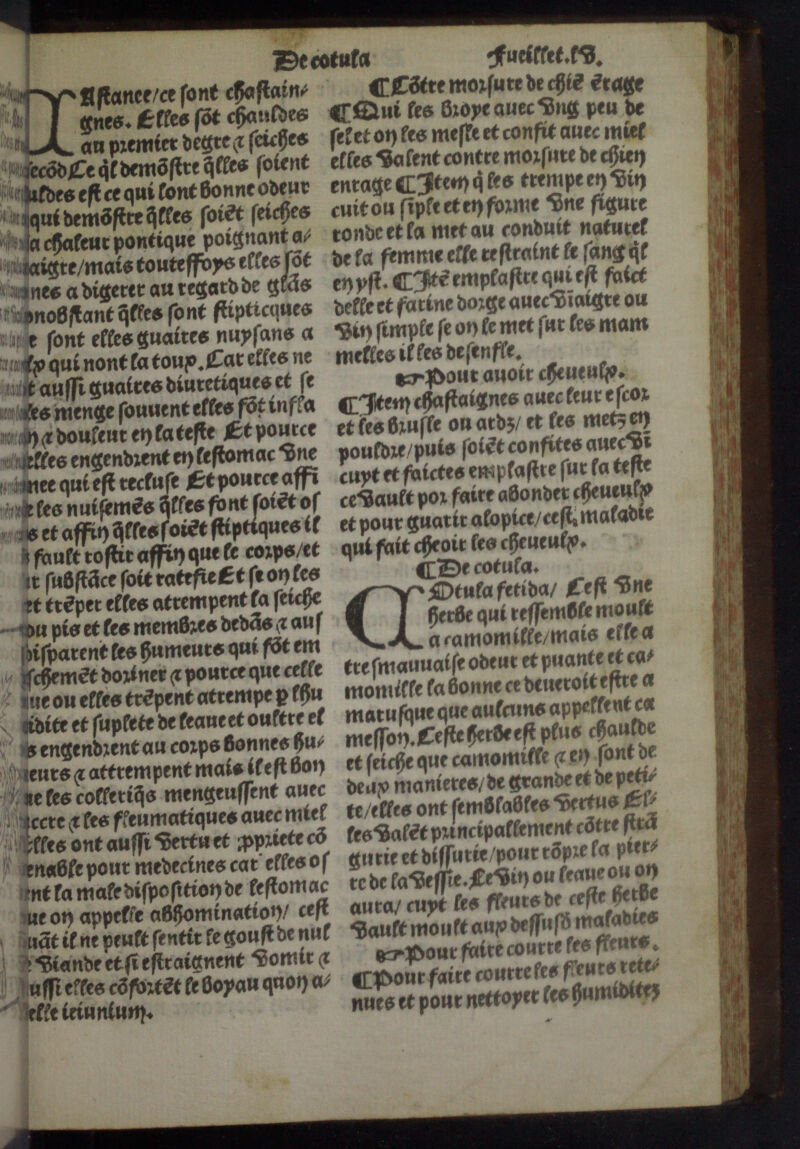 De cotula
fueillet.lv.
Astance/ce sont chastain⸗
gnes. Elles sõt chauldes
au premier degre ⁊ seiches
secõd Ce q̃l demõstre q̃lles soient
est ce qui lont bonne odeur
qui demõstre q̃lles soiẽt seiches
la chaleur pontique poignant a⸗
aigre/mais touteffoys elles sõt
a digerer au regard de glãs
nobstant q̃lles sont stipticques
sont elles guaires nuysans a
qui nont la toux. Car elles ne
aussi guaires diuretiques et se
les menge souuent elles fõt infla
⁊ douleur en la teste Et pource
elles engendrent en lestomac vne
qui est recluse Et pource affi
les nuisemẽs q̃lles font soiẽt os
et affin q̃lles soiẽt stiptiques il
fault rostir affin que le corps/et
substãce soit ratefie Et se on les
trẽper elles atrempent la seiche
du pis et les membres dedãs ⁊ aus
disparent les humeurs qui sõt em
dormer ⁊ pource que celle
ou elles trẽpent atrempe p lhu
et suplete de leaue et oultre el
engendrent au corps bonnes hu⸗
⁊ attrempent mais il est bon
les colleriq̃s mengeussent auec
⁊ les fleumatiques auec miel
Elles ont aussi vertu et ꝓpriete cõ
pour medecines car elles os
la male disposition de lestomac
on appelle abhomination/ cest
il ne peult sentir le goust de nul
viande et si estraignent vomir ⁊
aussi elles cõfortẽt le boyau quon a⸗
ieiunium.
¶Cõtre morsure de chiẽ ẽrage
¶Qui les broye auec vng peu de
sel et on les mesle et confit auec miel
elles valent contre morsure de chien
enrage ¶Item q̃ les trempe en vin
cuit ou siple et en forme vne figure
ronde et la met au conduit naturel
de la femme elle restraint le sang q̃l
en yst. ¶Itẽ emplastre qui est faict
delle et farine dorge auec viaigre ou
vin simple se on le met sur les mam
melles il les desenfle.
☞Pour auoir cheueulx.
¶Item chastaignes auec leur escor
et les brusle on ardz/ et les metz en
pouldre/puis soiẽt confites auec vi
cuyt et faictes emplastre sur la teste
ce vault por faire abonder cheueulx
et pour guarir alopice/cest, maladie
qui fait cheoir les cheueulx.
¶De cotula.
COtula fetida/ Cest vne
herbe qui ressemble moult
a camomille/mais elle a
tresmauuaise odeur et puante et ca⸗
momille la bonne ce deueroit estre a
marusque que aulcuns appellent ca
messon. Ceste herbe est plus chaulde
et seiche que camomille ⁊ en sont de
deux manieres/de grande et de peti⸗
te/elles ont semblables vertus El⸗
les valẽt principallement cõtre strã
gurie et dissurie/pour rõpre la pier⸗
re de la vessie. Le vin ou leaue ou on
aura/ cuyt les fleurs de ceste herbe
vault moult aux dessusd maladies
☞Pour faire courre les fleurs.
¶Pour faire courre les fleurs rete⸗
nues et pour nettoyer les humiditez